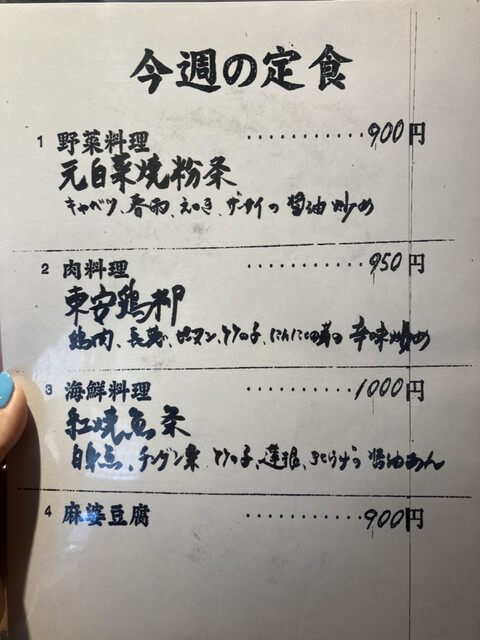 今週の定食
1 野菜料理 ············900円
元白菜焼粉条
キャベツ、春雨、えのき、ザーサイの醤油炒め
2 肉料理 ············950円
東安鶏柳
鶏肉、長葱、ピーマン、竹の子、にんにくの芽の辛味炒め
3 海鮮料理 ············1000円
紅焼魚条
白身魚、チンゲン菜、竹の子、蓮根、きくらげの醤油あん
4 麻婆豆腐 ············900円